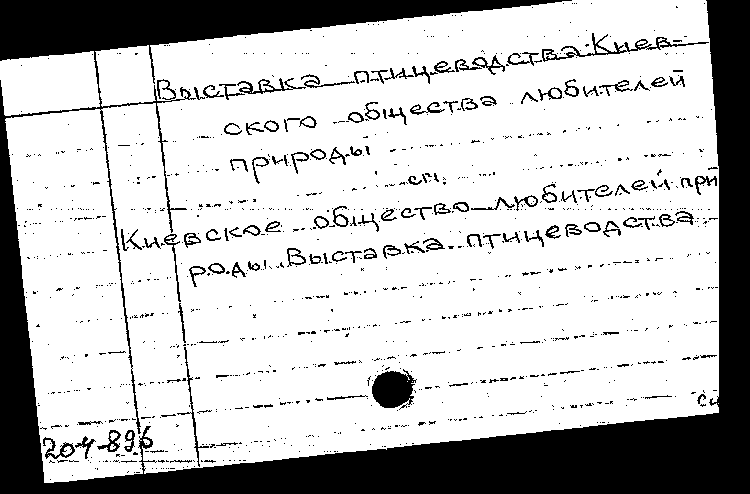 Выставка птицеводства Киев-
ского общества любителей
природы
см.
Киевское общество любителей при
роды. Выставка птицеводства
204-896